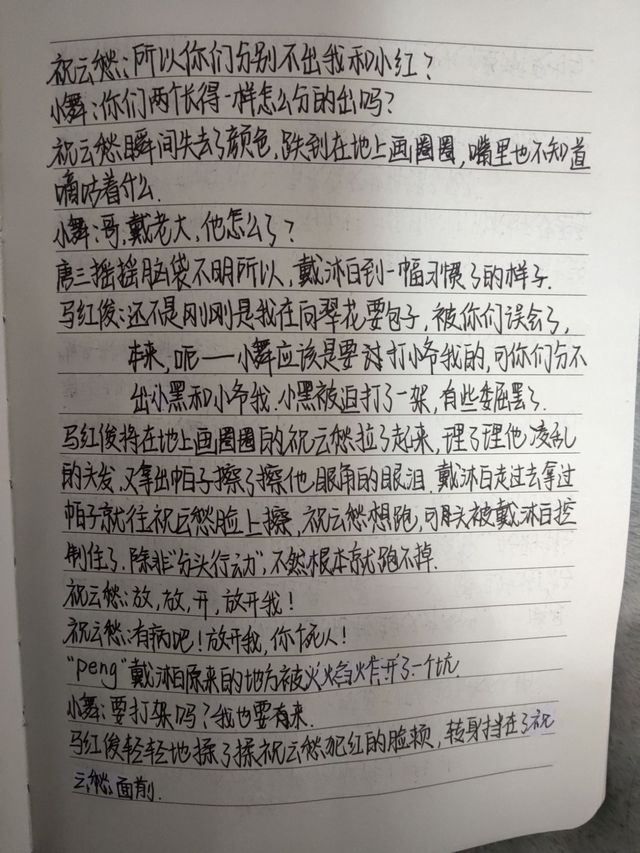 祝云愁:所以你们分别不出我和小红?
小舞:你们两个长得一样怎么分的出吗?
祝云愁瞬间失去了颜色,跌到在地上画圈圈,嘴里也不知道
嘀咕着什么.
小舞:哥,戴老大,他怎么了?
唐三摇摇脑袋不明所以,戴沐白到一幅习惯了的样子.
马红俊:还不是刚刚是我在向翠花要包子,被你们误会了,
本来,呃——小舞应该是要对打小爷我的,可你们分不
出小黑和小爷我.小黑被迫打了一架,有些委屈罢了.
马红俊将在地上画圈圈的祝云愁拉了起来,理了理他凌乱
的头发.又拿出帕子擦了擦他眼角的眼泪.戴沐白走过去拿过
帕子就往祝云愁脸上擦,祝云愁想跑,可头被戴沐白控
制住了.除非“分头行动”,不然根本就跑不掉.
祝云愁:放,放,开,放开我!
祝云愁:有病吧!放开我,你个死人!
“peng”戴沐白原来的地方被火焰炸开了一个坑.
小舞:要打架吗?我也要有来.
马红俊轻轻地揉了揉祝云愁犯红的脸颊,转身挡在了祝
云愁面前.